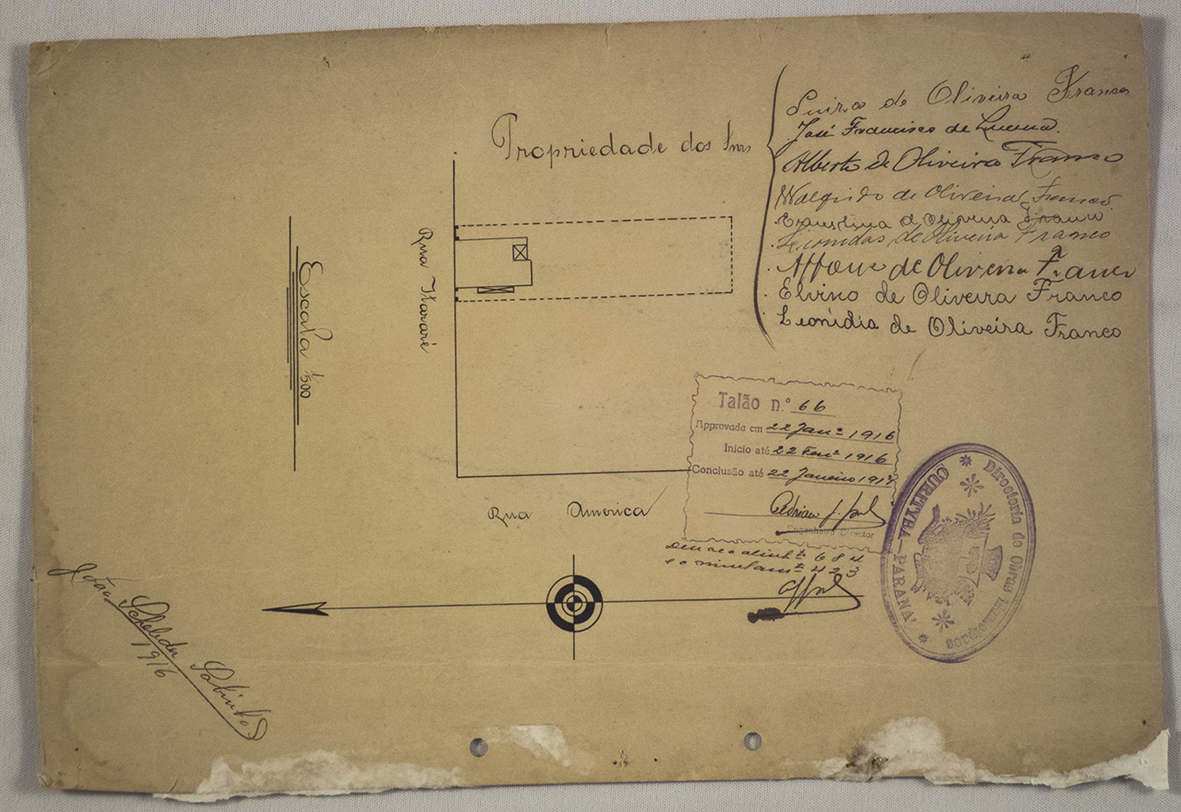 Propriedade dos Snrs
Luiza de Oliveira Franco
José Francisco de Lucena
Alberto de Oliveira Franco
Walfrido de Oliveira Franco
Ernestina d Oliveira Franco
Leonidas de Oliveira Franco
Affonso de Oliveira Franco
Elvino de Oliveira Franco
Leonidia de Oliveira Franco
Rua Itararé
Escala 1/500
Rua America
Talão n.º 66
Approvada em 22 Janº 1916
Inicio até 22 Fevº 1916
Conclusão até 22 Janeiro 1917
Engenheiro Director
684
423
Directoria de Obras Municipaes
CURITYBA - PARANÁ
João
1916